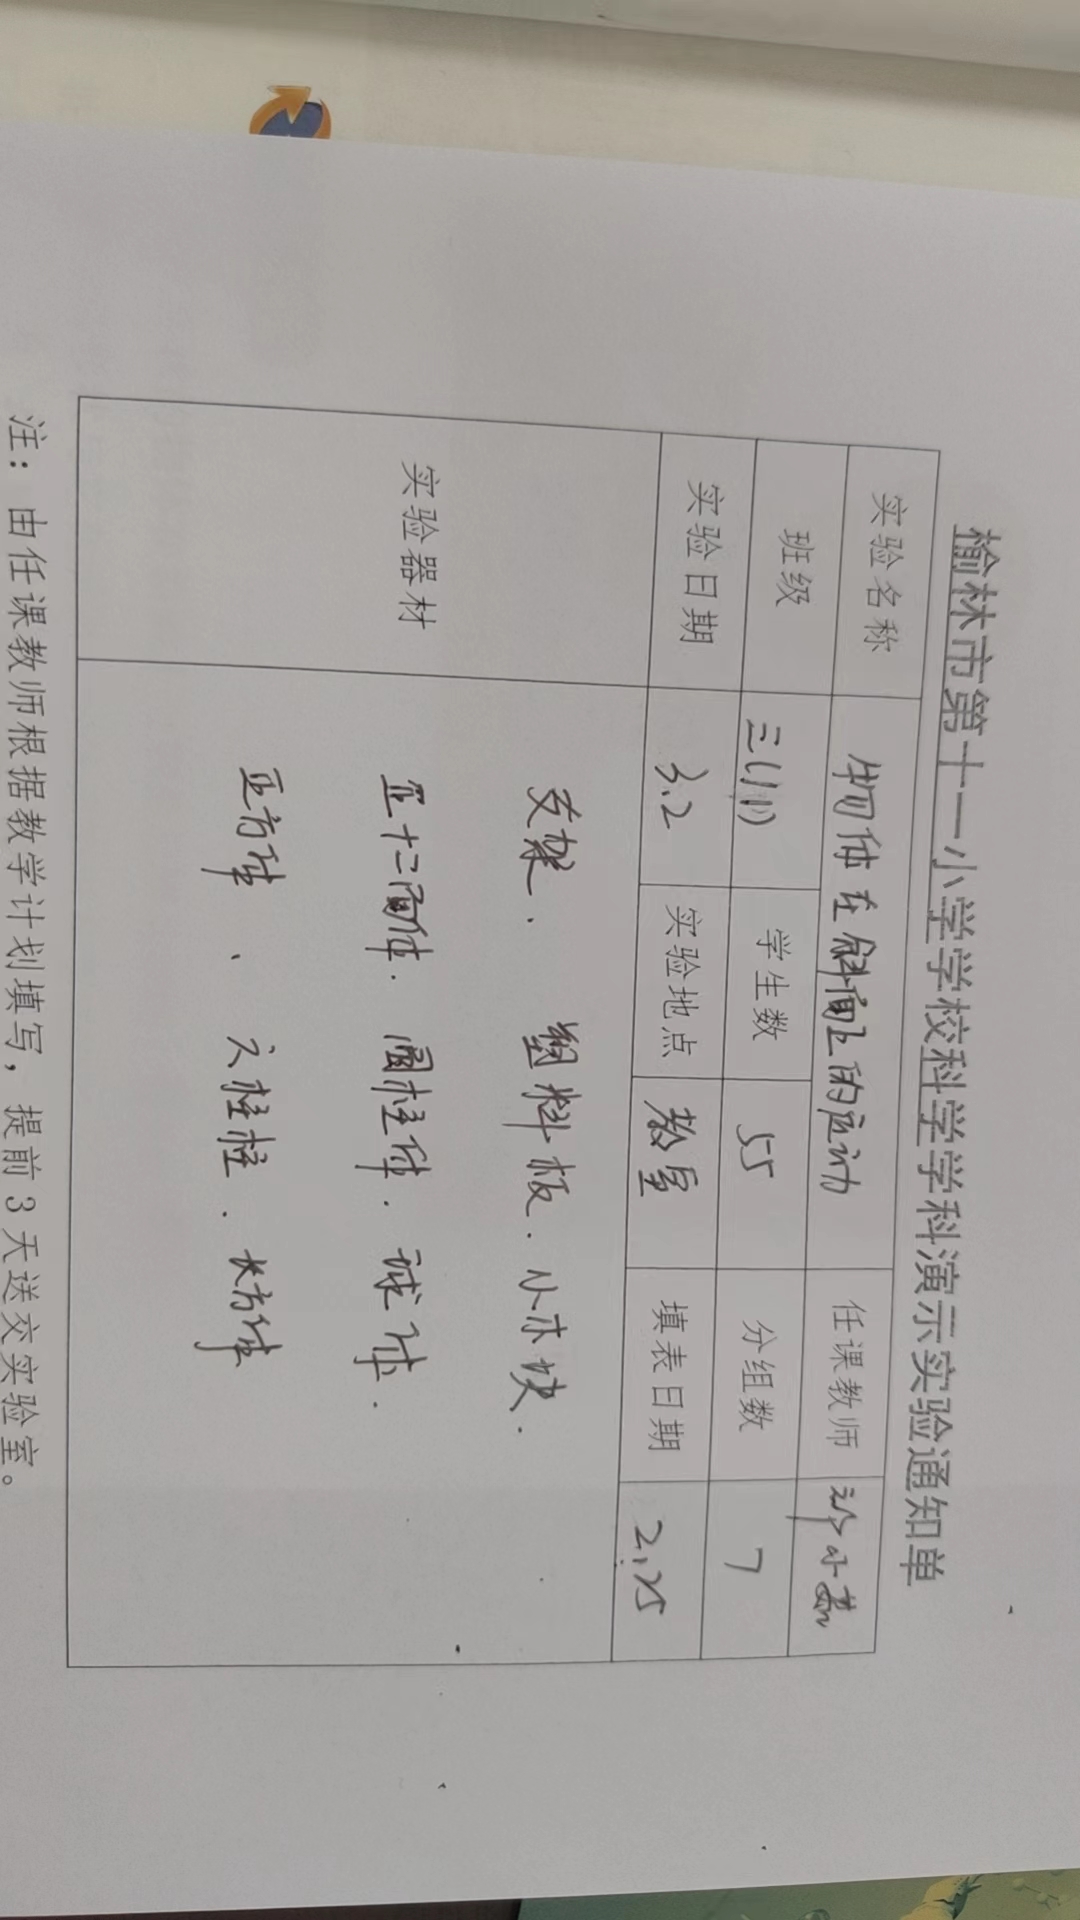 榆林市第十一小学学校科学学科演示实验通知单
实验名称 物体在斜面上的运动 任课教师 小燕
班级 三(11) 学生数 55 分组数 7
实验日期 3.2 实验地点 教室 填表日期 2.25
实验器材
支架. 塑料板. 小木块.
正十二面体. 圆柱体. 球体.
正方体、六柱柱. 长方体
注：由任课教师根据教学计划填写，提前3天送交实验室。